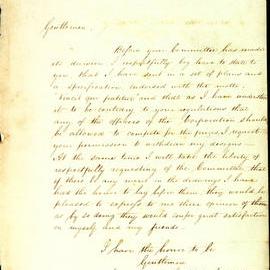 Gentlemen.
Before your Committee has made
its decision I respectfully beg leave to state to
you, that I have sent in a set of plans and
a specification indorsed with the motto
and that as I have understood
it to be contrary to your regulations that
any of the officers of the Corporation should
be allowed to compete for the prizes I request
your permission to withdraw my designs —
At the same time I will take the liberty of
respectfully requesting of the Committee that
if there be any merit in the drawings I have
had the honor to lay before them they would be
pleased to express to me their opinion of them
as by so doing they would confer great satisfaction
on myself and my friends.
I have the honor to be
Gentlemen